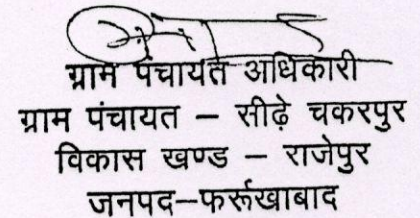 ग्राम पंचायत अधिकारी
ग्राम पंचायत – सीढ़े चकरपुर
विकास खण्ड – राजेपुर
जनपद–फर्रूखाबाद